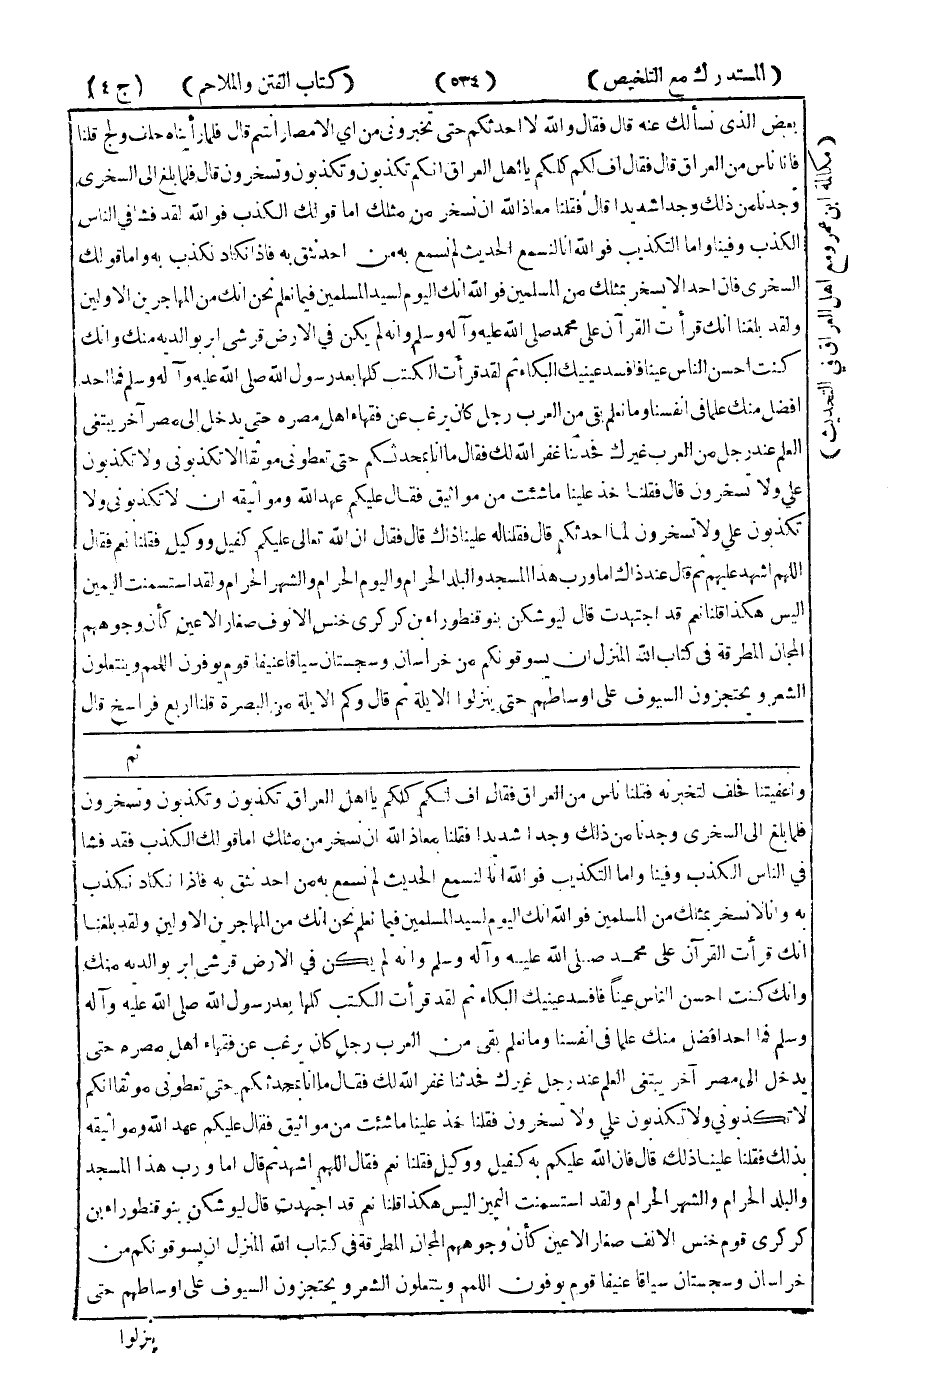 (المستدرك مع التلخيص) (٥٣٤) (كتاب الفتن والملاحم) (ج ٤)
بعض الذى نسألك عنه قال فقال والله لا احدثكم حتى تخبرونى من اي الامصار انتم قال فلما رأيناه حلف ولج قلنا
فانا ناس من العراق قال فقال اف لكم كلكم يا اهل العراق انكم تكذبون وتكذبون وتسخرون قال فلما بلغ الى السخرى
وجدنا من ذلك وجدا شديدا قال فقلنا معاذ الله ان نسخر من مثلك اما قولك الكذب فو الله لقد فشا في الناس
الكذب وفينا واما التكذيب فو الله انا لنسمع الحديث لم نسمع به من احد نثق به فاذا نكاد نكذب به واما قولك
السخرى فان احدا لا يسخر بمثلك من المسلمين فو الله انك اليوم لسيد المسلمين فيما نعلم نحن انك من المهاجرين الاولين
ولقد بلغنا انك قرأت القرآن على محمد صلى الله عليه وآله وسلم وانه لم يكن في الارض قرشى ابر بوالديه منك وانك
كنت احسن الناس عينا فافسد عينيك البكاء ثم لقد قرأت الكتب كلها بعد رسول الله صلى الله عليه وآله وسلم فما احد
افضل منك علما فى انفسنا وما نعلم بقى من العرب رجل كان يرغب عن فقهاء اهل مصره حتى يدخل الى مصر آخر يبتغى
العلم عند رجل من العرب غيرك فحدثنا غفر الله لك فقال ما انا بمحدثكم حتى تعطونى موثقا الا تكذبونى ولا تكذبون
علي ولا تسخرون قال فقلنا خذ علينا ما شئت من مواثيق فقال عليكم عهد الله ومواثيقه ان لا تكذبونى ولا
تكذبون علي ولا تسخرون لما احدثكم قال فقلنا له علينا ذاك قال فقال ان الله تعالى عليكم كفيل ووكيل فقلنا نعم فقال
اللهم اشهد عليهم ثم قال عند ذاك اما ورب هذا المسجد والبلد الحرام واليوم الحرام والشهر الحرام ولقد استسمنت اليمين
اليس هكذا قلنا نعم قد اجتهدت قال ليوشكن بنو قنطوراء بن كركرى خنس الانوف صغار الاعين كأن وجوههم
المجان المطرقة فى كتاب الله المنزل ان يسوقونكم من خراسان وسجستان سياقا عنيفا قوم يوفرون اللمم وينتعلون
الشعر ويحتجزون السيوف على اوساطهم حتى ينزلوا الايلة ثم قال وكم الايلة من البصرة قلنا اربع فراسخ قال
ثم
(مكالمة ابن عمرو مع اهل العراق في التحديث)
واعفيتنا فحلف لتخبرنه فقلنا ناس من العراق فقال اف لكم كلكم يا اهل العراق تكذبون وتكذبون وتسخرون
فلما بلغ الى السخرى وجدنا من ذلك وجدا شديدا فقلنا معاذ الله ان نسخر من مثلك اما قولك الكذب فقد فشا
في الناس الكذب وفينا واما التكذيب فو الله انا لنسمع الحديث لم نسمع به من احد نثق به فاذا نكاد نكذب
به وانا لا نسخر بمثلك من المسلمين فو الله انك اليوم لسيد المسلمين فيما نعلم نحن انك من المهاجرين الاولين ولقد بلغنا
انك قرأت القرآن على محمد صلى الله عليه وآله وسلم وانه لم يكن في الارض قرشى ابر بوالديه منك
وانك كنت احسن الناس عيناً فافسد عينيك البكاء ثم لقد قرأت الكتب كلها بعد رسول الله صلى الله عليه وآله
وسلم فما احد افضل منك علما فى انفسنا وما نعلم بقى من العرب رجل كان يرغب عن فقهاء اهل مصره حتى
يدخل الى مصر آخر يبتغى العلم عند رجل غيرك فحدثنا غفر الله لك فقال ما انا بمحدثكم حتى تعطونى موثقا انكم
لا تكذبوني ولا تكذبون علي ولا تسخرون فقلنا خذ علينا ما شئت من مواثيق فقال عليكم عهد الله ومواثيقه
بذلك فقلنا علينا ذلك قال فان الله عليكم به كفيل ووكيل فقلنا نعم فقال اللهم اشهد ثم قال اما ورب هذا المسجد
والبلد الحرام والشهر الحرام ولقد استسمنت اليمين اليس هكذا قلنا نعم قد اجتهدت قال ليوشكن بنو قنطوراء بن
كركرى قوم خنس الانف صغار الاعين كأن وجوههم المجان المطرقة فى كتاب الله المنزل ان يسوقونكم من
خراسان وسجستان سياقا عنيفا قوم يوفون اللمم وينتعلون الشعر ويحتجزون السيوف على اوساطهم حتى
ينزلوا